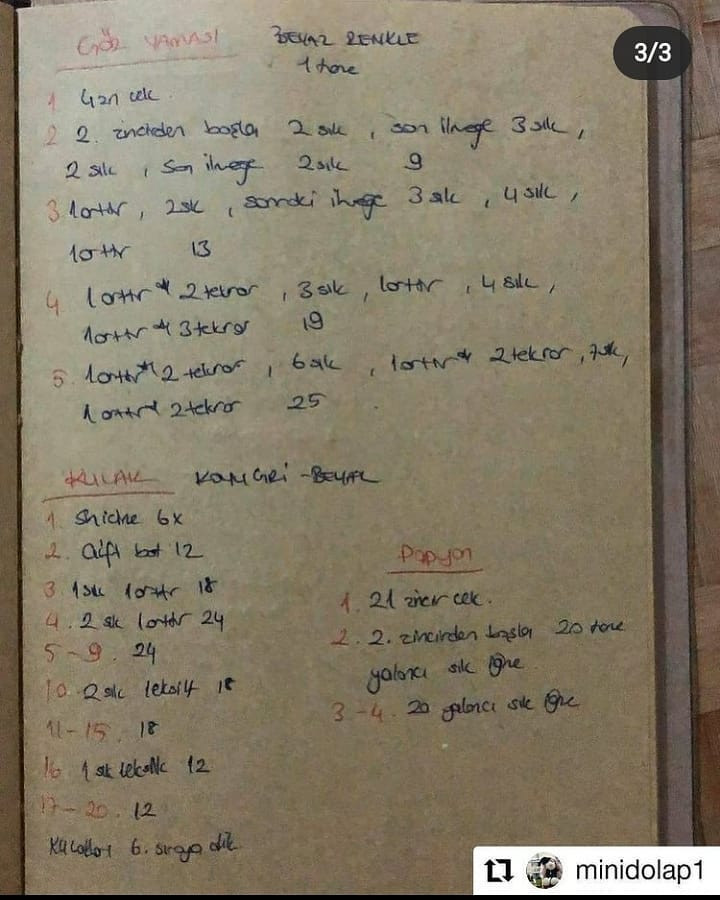 GÖZ YAMASI BEYAZ RENKLE
1 tane
3/3
1 4 zn cek.
2 2. zncirden başla 2 sık, son ilmeğe 3 sık,
2 sık, son ilmeğe 2 sık 9
3 1 arttır, 2 sık, sonraki ilmeğe 3 sık, 4 sık,
1 arttır 13
4 1 arttır * 2 tekrar, 3 sık, 1 arttır, 4 sık,
1 arttır * 3 tekrar 19
5. 1 arttır * 2 tekrar, 6 sık, 1 arttır * 2 tekrar, 7 sık,
1 arttır * 2 tekrar 25
KULAK KOYU GRİ - BEYAZ
1. Sihirne 6x
2. çift bat 12
3 1 sık 1 arttır 18
4. 2 sık 1 arttır 24
5-9. 24
10. 2 sık 1 eksilt 18
11-15. 18
16. 1 sık 1 eksilt 12
17-20. 12
Kulakları 6. sıraya dik.
Papyon
1. 21 zincir cek.
2. 2. zincirden başla 20 tane
yalancı sık iğne.
3-4. 20 yalancı sık iğne
minidolap1